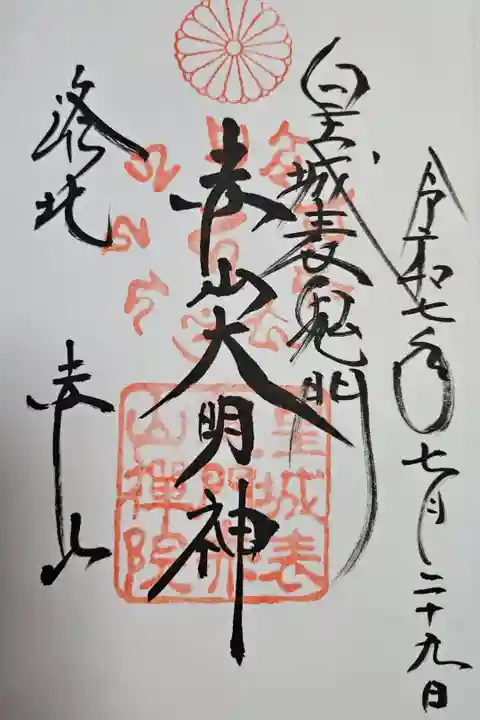 令和七年七月二十九日
皇城表鬼門
赤山大明神
洛北
赤山
皇城表
山禅院